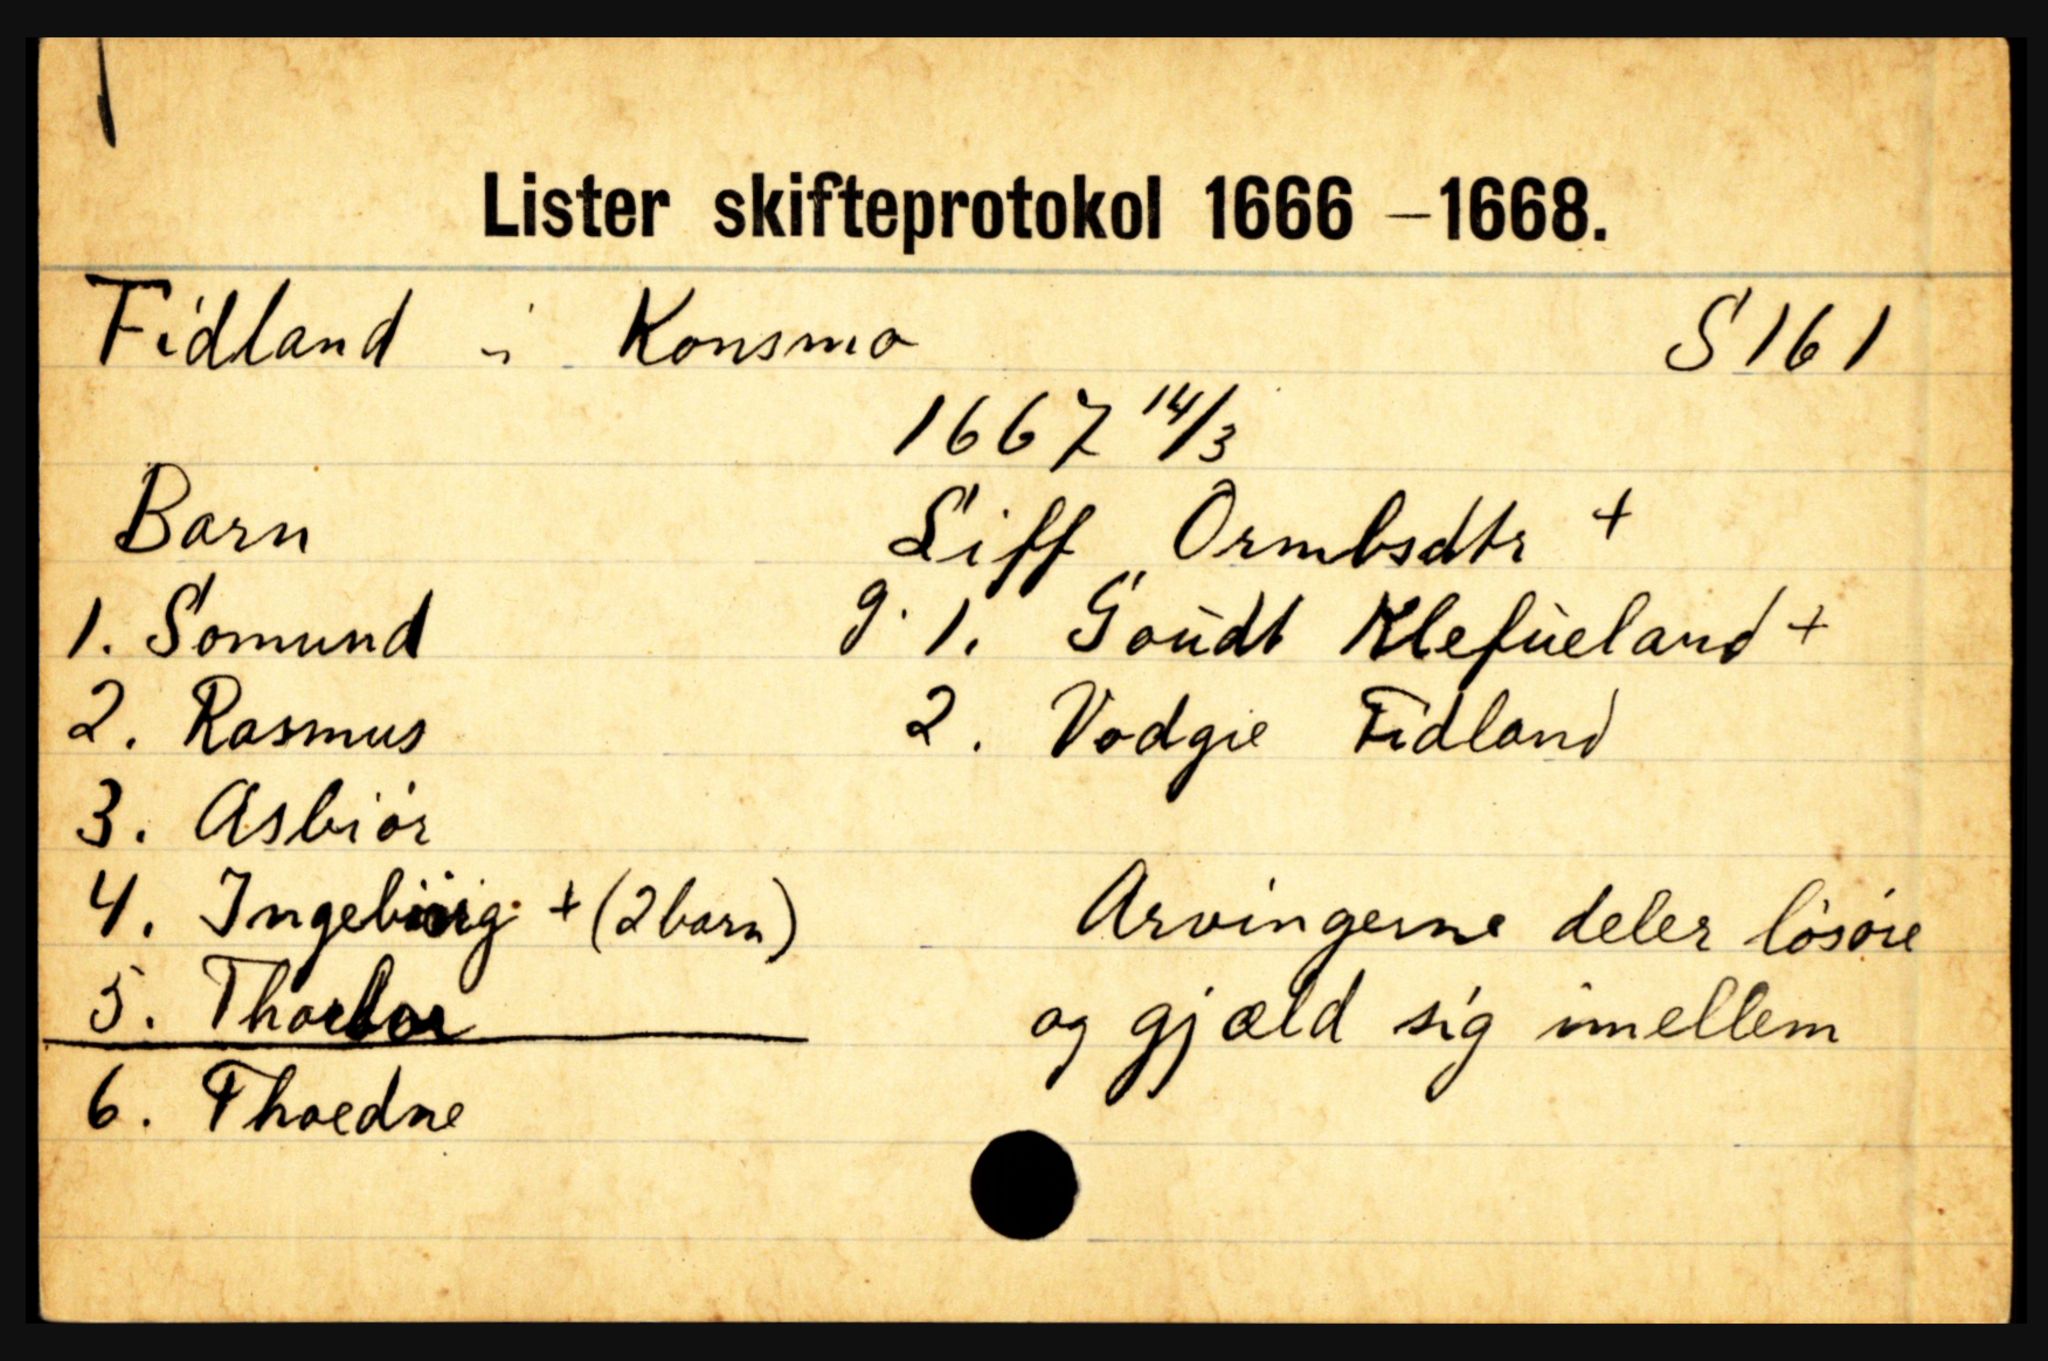 Lister skifteprotokol 1666 – 1668.
Fidland i Konsmo S 161
1667 14/3
Barn Siff Ormbsdtr +
1. Somund g. 1. Goudt Klefueland +
2. Rasmus 2. Vodgie Fidland
3. Asbiör
4. Ingebiörg + (2 barn) Arvingerne deler lösöre
5. Thorbor og gjæld sig imellem
6. Thoedne